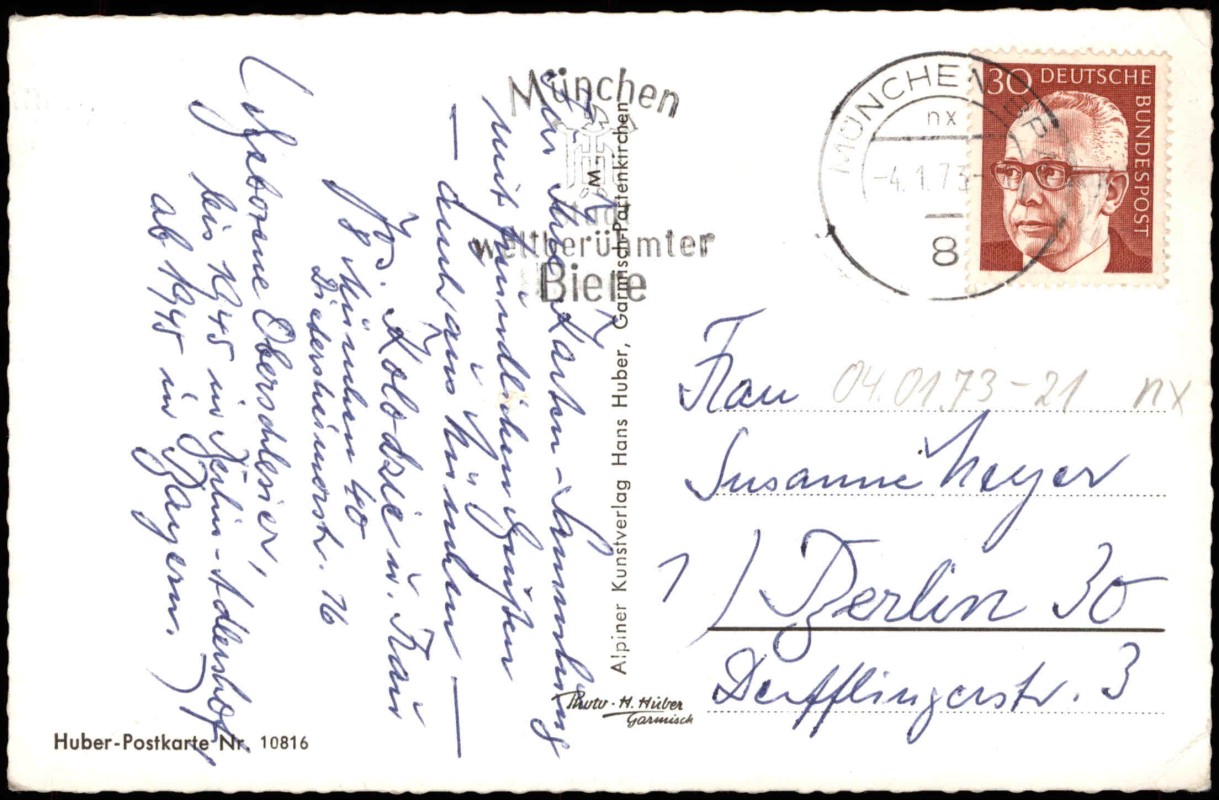 Für Ihre Karten-Sammlung
mit freundlichen Grüßen
— aus München —
J. Kolodziej u. Frau
8 München 40
Diedersheimerstr. 16
(Geborene Oberschlesier,
bis 1945 in Berlin-Adlershof,
ab 1945 in Bayern.)
Huber-Postkarte Nr. 10816
München
M
Stadt
weltberühmter
Biere
Alpiner Kunstverlag Hans Huber, Garmisch-Partenkirchen
Photo-H. Huber
Garmisch
MÜNCHEN
nx
-4.1.73-
8
30 DEUTSCHE
BUNDESPOST
04.01.73-21 nx
Frau
Susanne Meyer
1/Berlin 30
Derfflingerstr. 3